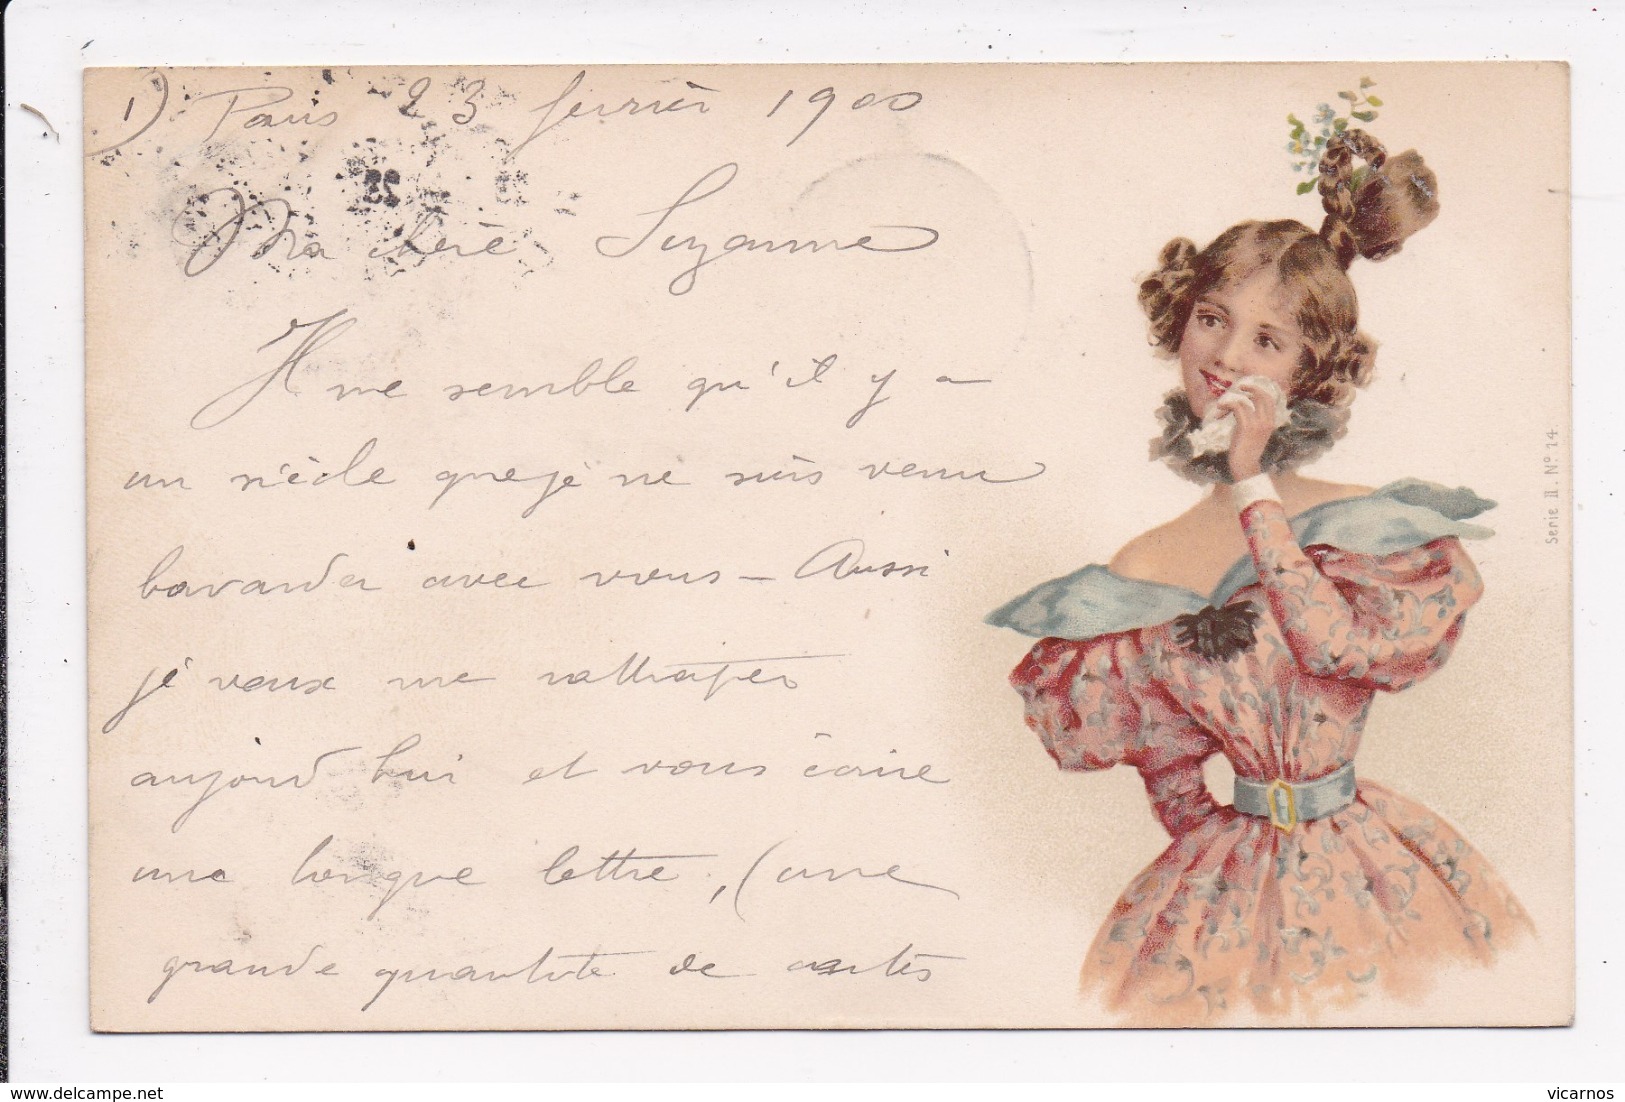 1) Paris 23 février 1900
Ma chère Suzanne
Il me semble qu'il y a
un siècle que je ne suis venu
bavarder avec vous — Aussi
je veux me rattraper
aujourd'hui et vous écrire
une longue lettre, (une
grande quantité de cartes
Serie II. Nº 14
23
vicarnos
https://www.delcampe.net